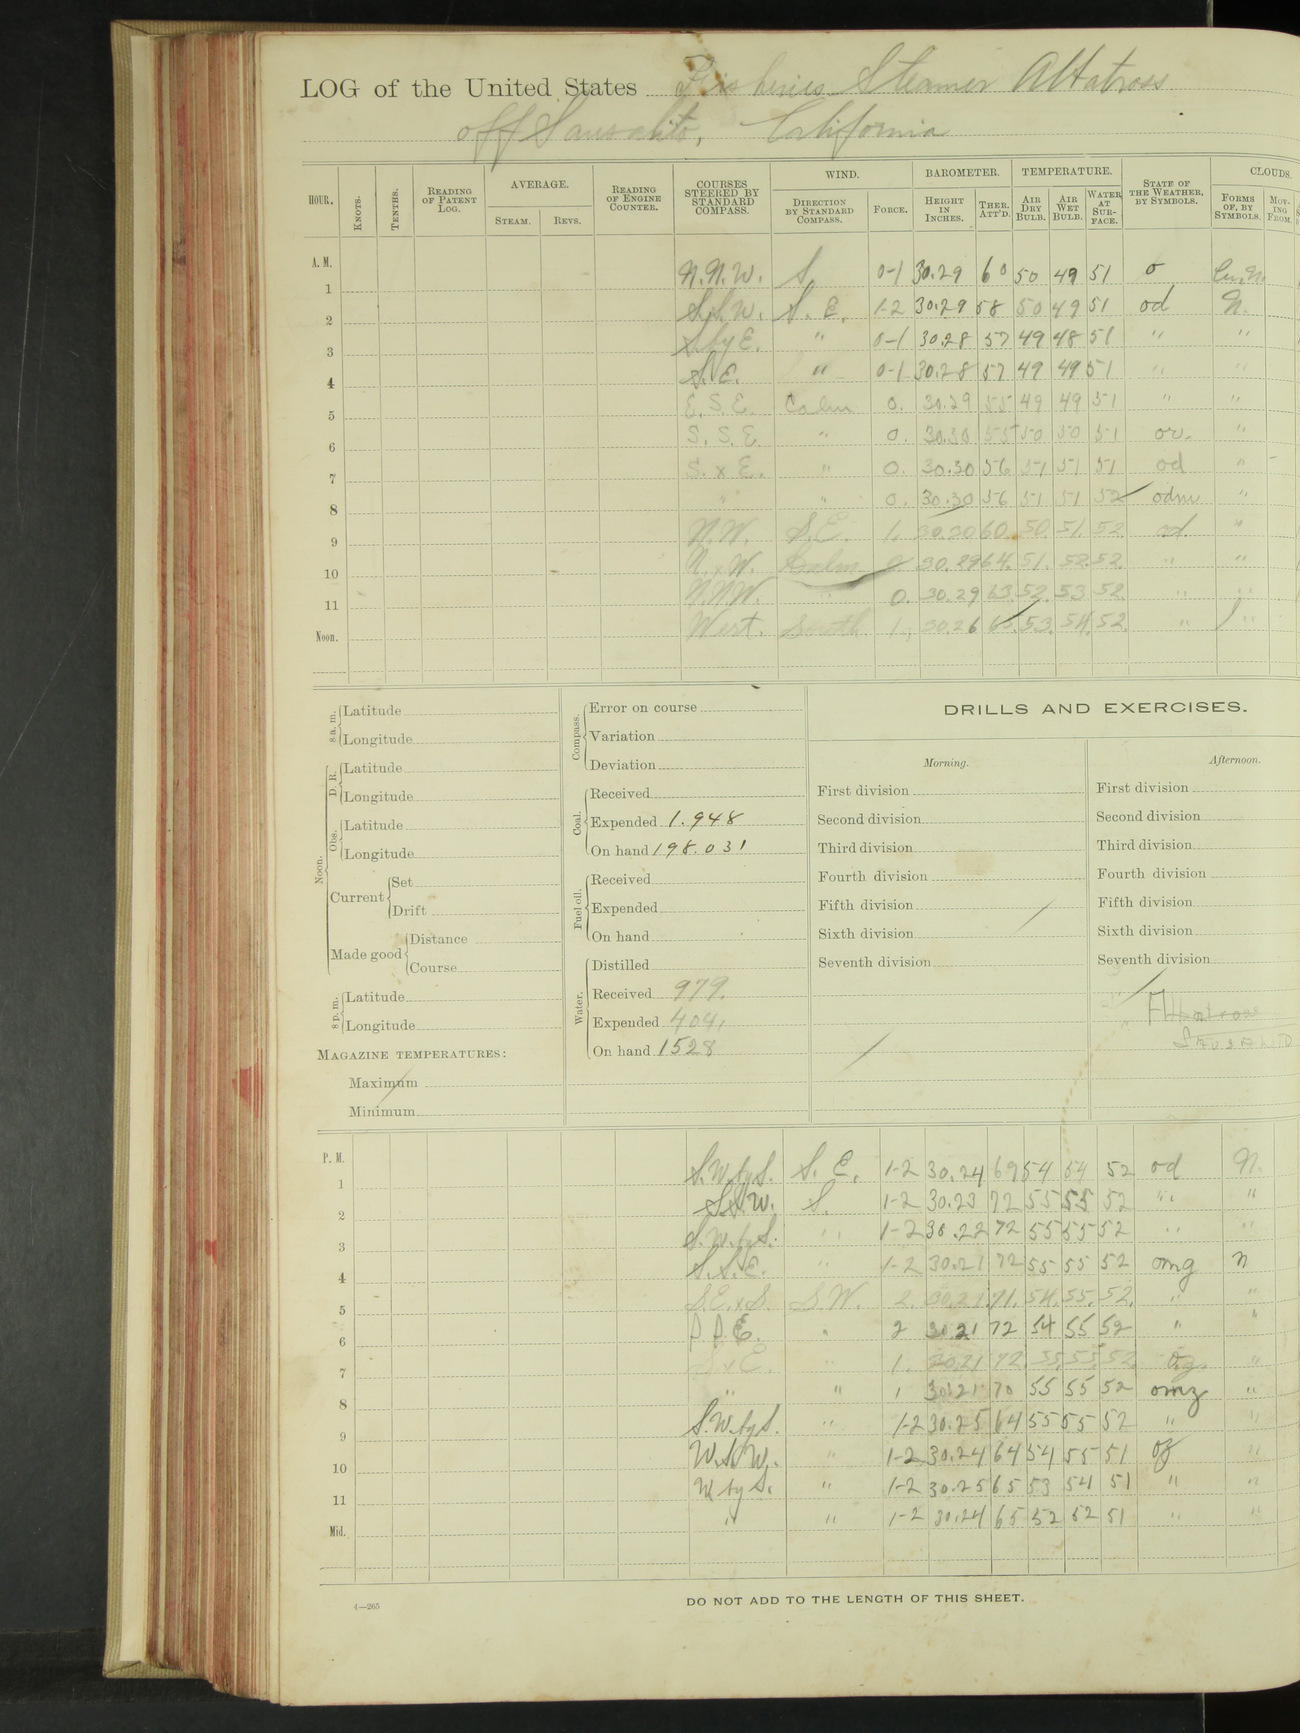 LOG of the United States Fisheries Steamer Albatross
off Sausalito, California
HOUR. KNOTS. TENTHS. READING OF PATENT LOG. AVERAGE. STEAM. REVS. READING OF ENGINE COUNTER. COURSES STEERED BY STANDARD COMPASS. WIND. DIRECTION BY STANDARD COMPASS. FORCE. BAROMETER. HEIGHT IN INCHES. THER. ATT'D. TEMPERATURE. AIR DRY BULB. AIR WET BULB. WATER AT SUR-FACE. STATE OF THE WEATHER, BY SYMBOLS. CLOUDS. FORMS OF, BY SYMBOLS. MOV-ING FROM.
A. M.
1 N.N.W. S. 0-1 30.29 60 50 49 51 o Cu.N.
2 S.S.W. S. E. 1-2 30.29 58 50 49 51 od N.
3 S. by E. " 0-1 30.28 57 49 48 51 " "
4 S.E. " 0-1 30.28 57 49 49 51 " "
5 E. S. E. Calm 0. 30.29 55 49 49 51 " "
6 S. S. E. " 0. 30.30 55 50 50 51 or. "
7 S. x E. " 0. 30.30 56 51 51 51 od "
8 " " 0. 30.30 56 51 51 52 odm "
9 N.W. S.E. 1. 30.30 60. 50. 51. 52. od. "
10 N. x W. Calm 0 30.29 64. 51. 52. 52. " "
11 N.N.W. " 0. 30.29 63. 52. 53. 52. " "
Noon. West. South 1. 30.26 65. 53. 54. 52. " "
8 a. m. Latitude
Longitude
Noon. D. R. Latitude
Longitude
Obs. Latitude
Longitude
Current Set
Drift
Made good Distance
Course
8 p. m. Latitude
Longitude
MAGAZINE TEMPERATURES:
Maximum
Minimum
Compass. Error on course
Variation
Deviation
Coal. Received
Expended 1.948
On hand 198.031
Fuel oil. Received
Expended
On hand
Water. Distilled
Received 979.
Expended 404.
On hand 1528
DRILLS AND EXERCISES.
Morning. Afternoon.
First division First division
Second division Second division
Third division Third division
Fourth division Fourth division
Fifth division Fifth division
Sixth division Sixth division
Seventh division Seventh division
Albatross
P. M.
1 S.W. by S. S. E. 1-2 30.24 69 54 54 52 od N.
2 S.S.W. S. 1-2 30.23 72 55 55 52 " "
3 S.W. by S. " 1-2 30.22 72 55 55 52 " "
4 S.S.E. " 1-2 30.21 72 55 55 52 omg N
5 S.E. x S. S.W. 2. 30.21 71. 54. 55. 52. " "
6 S.S.E. " 2 30.21 72 54 55 52 " "
7 S x E. " 1. 30.21 72. 55. 55. 52. "
8 " " 1 30.21 70 55 55 52 omg "
9 S.W. by S. " 1-2 30.25 64 55 55 52 " "
10 W.S.W. " 1-2 30.24 64 54 55 51 "
11 W. by S. " 1-2 30.25 65 53 54 51 " "
Mid. " " 1-2 30.24 65 52 52 51 " "
4—265
DO NOT ADD TO THE LENGTH OF THIS SHEET.